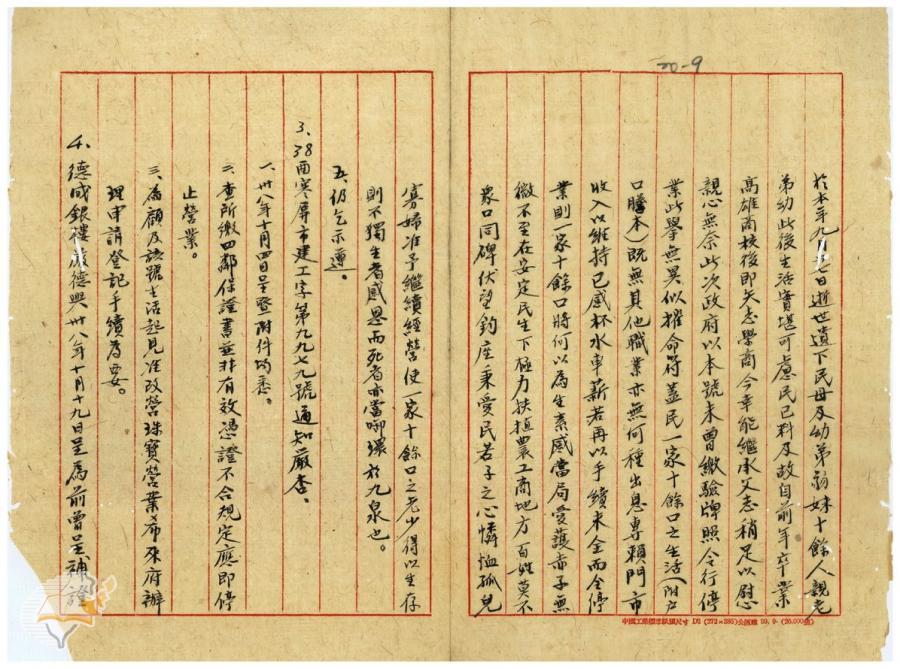 20-9
於本年九月廿七日逝世遺下民母及幼弟弱妹十餘人親老
弟幼此後生活實堪可慮民已料及故自前年卒業
高雄商校後即矢志學商今幸能繼承父志稍足以慰
親心無奈此次政府以本號未曾繳驗牌照令行停
業此舉無異似摧命符蓋民一家十餘口之生活(附戶
口謄本)既無其他職業亦無何種出息專賴門市
收入以維持已感杯水車薪若再以手續未全而令停
業則一家十餘口將何以為生素感當局愛護赤子無
微不至在安定民生下極力扶植農工商地方百姓莫不
衆口同碑伏望鈞座秉愛民若子之心憐恤孤兒
中國工業標準紙張尺寸 D2 (272×385)公厘
寡婦准予繼續經營使一家十餘口之老少得以生存
則不獨生者感恩而死者亦當啣環於九泉也。
五、仍乞示遵。
3、38酉寒屏市建工字第九九七九號通知嚴杏、
一、卅八年十月四日呈暨附件均悉。
二、查所繳四鄰保證書並非有效憑證不合規定應即停
止營業。
三、為顧及該號生活起見准改營珠寶營業希來府辦
理申請登記手續為要。
4、德成銀樓嚴德興卅八年十月十九日呈為前曾呈補證